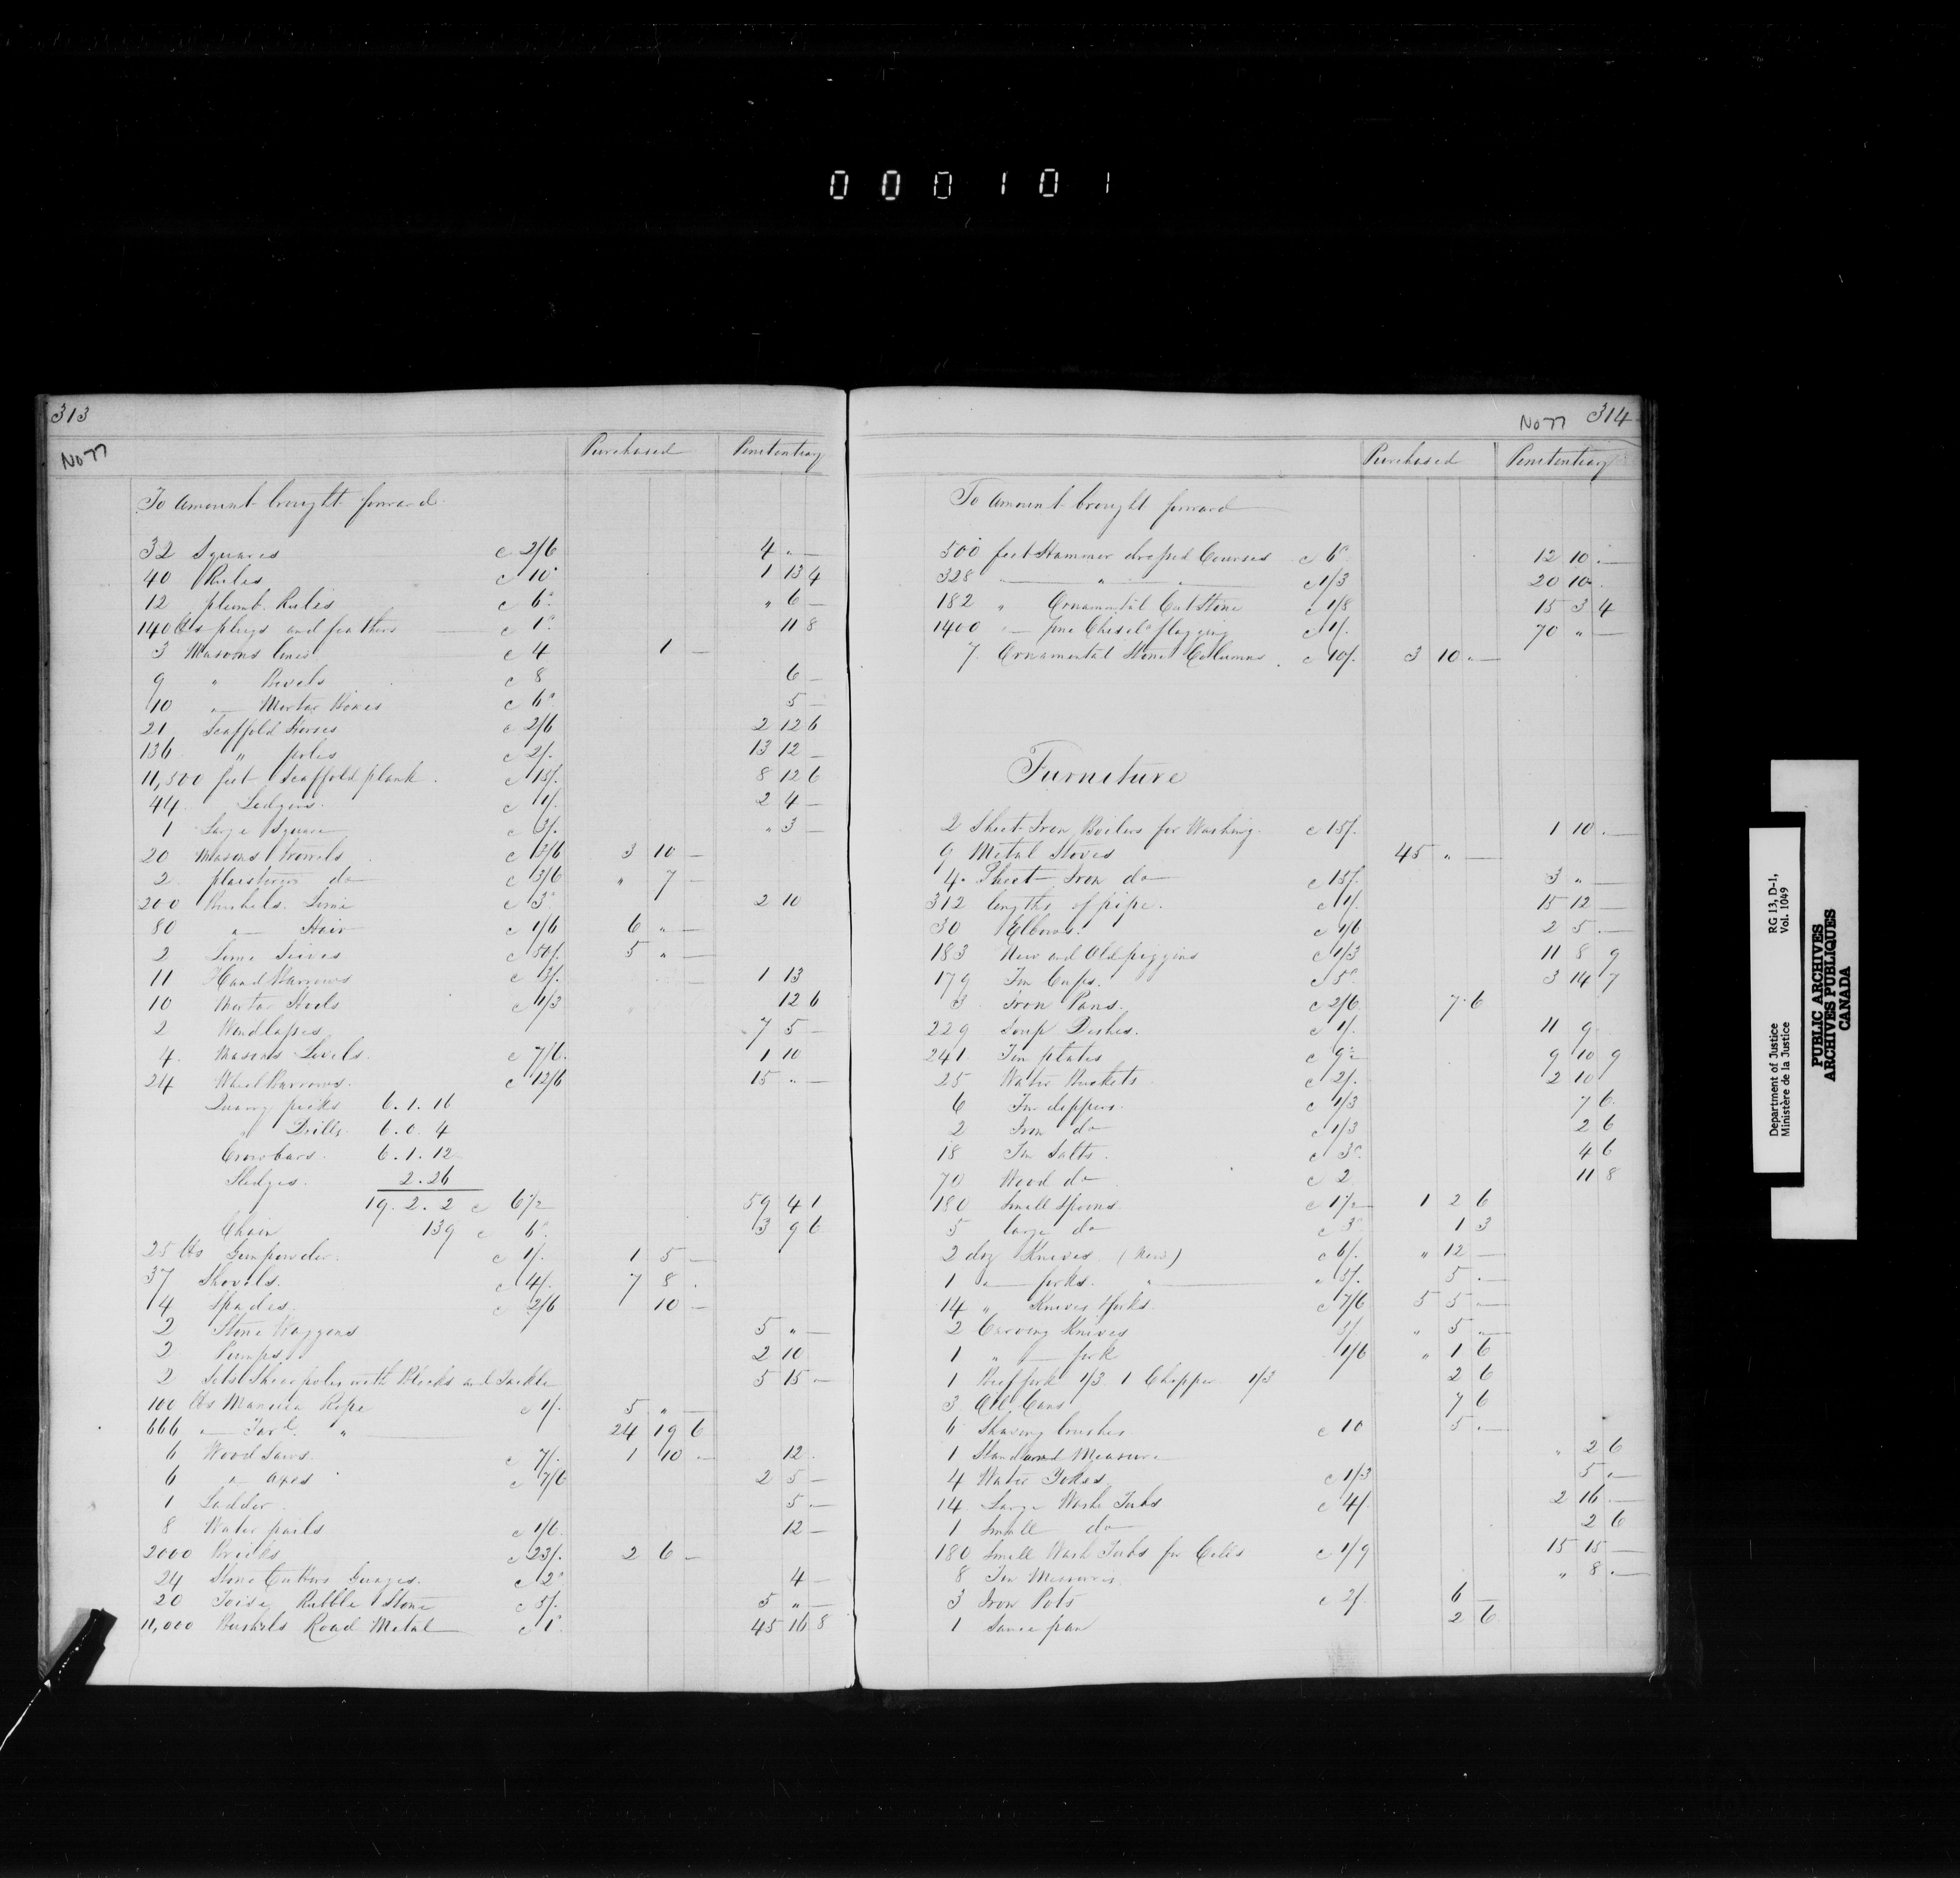 000101
313
No 77
Purchased Penitentiary
To Amount brought forward
32 Squares c 2/6 4 " —
40 Rules c 10d 1 13 4
12 plumb Rules c 6d " 6 —
140 lbs plugs and feathers c 1d 11 8
3 Masons lines c 4 1 —
9 " Bevels c 8 6 —
10 " Mortar Boxes c 6d 5 —
21 Scaffold Horses c 2/6 2 12 6
136 " poles c 2/. 13 12 —
11,500 feet Scaffold plank c 15/. 8 12 6
44 Ledgers c 1/. 2 4 —
1 Large Square c 3/. " 3 —
20 Masons Trowels c 3/6 3 10 —
2 plaisterers do c 3/6 " 7 —
200 Bushels Lime c 3d 2 10
80 " Hair c 1/6 6 " —
2 Lime Sieves c 50/. 5 " —
11 Hand Barrows c 3/. 1 13
10 Mortar Hods c 1/3 12 6
2 Windlasses 7 5 —
4 Masons Levels c 7/6 1 10
24 Wheel Barrows c 12/6 15 " —
Quarry picks 6.1.16
" Drills 6.0.4
Crowbars 6.1.12
Sledges 2.26
19.2.2 c 6½ 59 4 1
Chain 139 c 6d 3 9 6
25 lbs Gunpowder c 1/. 1 5 —
37 Shovels c 4/. 7 8 .
4 Spades c 2/6 10 —
2 Stone Waggons 5 " —
2 Pumps 2 10
2 Sets Sheer poles with Blocks and Tackle 5 15 —
100 lbs Manilla Rope c 1/. 5 " —
666 " Tard " 24 19 6
6 Wood Saws c 7/. 1 10 — 12 .
6 " Axes c 7/6 2 5 —
1 Ladder 5 —
8 Water pails c 1/6 12 —
2000 Bricks c 23/. 2 6 —
24 Stone Cutters Guages c 2d 4 —
20 Toise Rubble Stone c 5/. 5 " —
11,000 Bushels Road Metal c 1d 45 16 8
No 77 314
Purchased Penitentiary
To Amount brought forward
500 feet Hammer dressed Courses c 6d 12 10 —
328 " " c 1/3 20 10 .
182 " Ornamental Cut Stone c 1/8 15 3 4
1400 " fine Chisel'd flagging c 1/. 70 " —
7 Ornamental Stone Collumns c 10/. 3 10 " —
Furniture
2 Sheet Iron Boilers for Washing c 15/. 1 10 —
9 Metal Stoves 45 " —
4 Sheet Iron do c 15/. 3 " —
312 lengths of pipe c 1/. 15 12 —
30 Elbows c 1/6 2 5 —
183 New and Old piggins c 1/3 11 8 9
179 Tin Cups c 5d 3 14 7
3 Iron Pans c 2/6 7 6
229 Soup Dishes c 1/. 11 9
241 Tin plates c 9½ 9 10 9
25 Water Buckets c 2/. 2 10
6 Tin dippers c 1/3 7 6
2 Iron do c 1/3 2 6
18 Tin Salts c 3d 4 6
70 Wood do c 2 11 8
180 Small Spoons c 1½ 1 2 6
5 large do c 3d 1 3
2 doz Knives (New) c 6/. " 12 —
1 " forks " c 5/. 5 —
14 " Knives & forks c 7/6 5 5 —
2 Carving Knives 5/ " 5 —
1 " fork 1/6 " 1 6
1 Beef fork 1/3 1 Chopper 1/3 2 6
3 Oil Cans 7 6
6 Shaving brushes c 10 5 —
1 Standard Measure " 2 6
4 Water Yokes c 1/3 5 —
14 Large Wash Tubs c 4/. 2 16 —
1 Small do 2 6
180 Small Wash Tubs for Cells c 1/9 15 15 —
8 Tin Measures " 8 —
3 Iron Pots c 2/. 6 —
1 Sauce pan 2 6
Department of Justice RG 13, D-1,
Ministère de la Justice Vol. 1049
PUBLIC ARCHIVES
ARCHIVES PUBLIQUES
CANADA